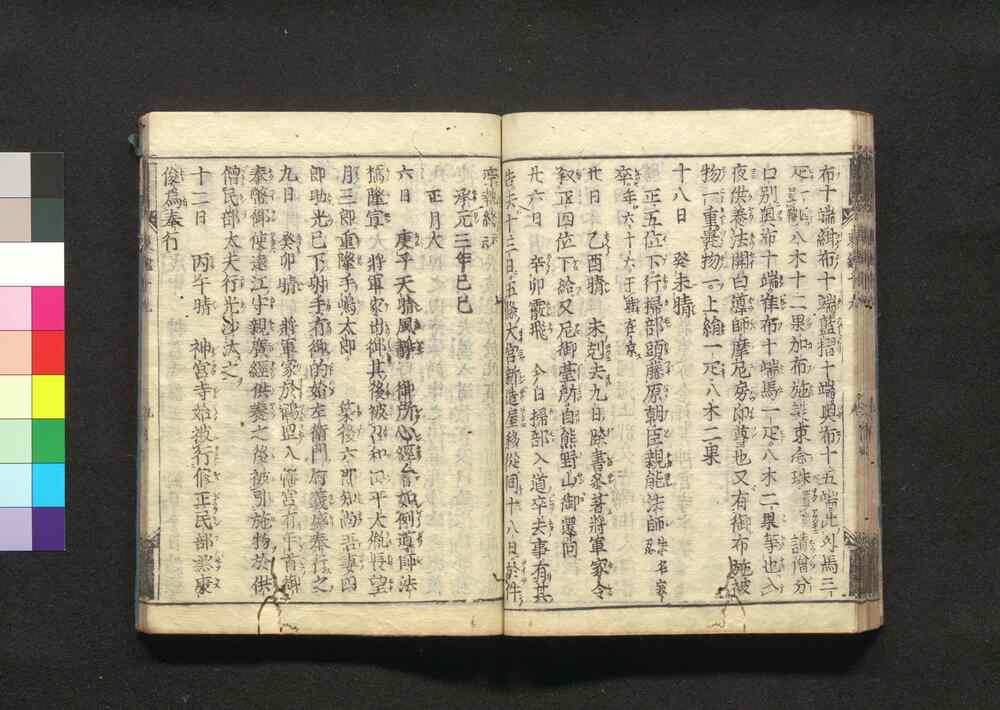 布十端紺布十端藍摺十端奥布十五端此外馬三
疋 八木十二果加布施裝束念珠 請僧分
口別奥布十端准布十端馬一疋八木二果等也入
夜供養法開白導師摩尼房阿尊也又有御布施被
物一重裹物一上絹一疋八木二果
十八日 癸未晴
正五位下行掃部頭藤原朝臣親能法師 名寂
卒年六十六于時在京
廿日 乙酉晴 未剋去九日除書参著將軍家令
叙正四位下給又尼御臺所自熊野山御還向
廿六日 辛卯霰飛 今日掃部入道卒去事有其
告去十三日五條大宮新造屋移從同十八日於件
承元三年己巳
正月大
六日 庚子天晴風靜 御所心經會如例導師法
橋隆宣 將軍家出御其後被 和田平太胤長望
月三郎重隆手嶋太郎 六郎知尚吾妻四
郎助光已下射手有御的始左衛門尉義盛奉行之
九日 癸卯晴 將軍家於鶴岳八幡宮
奉幣御使遠江守親廣經供養之後被引施物於供
僧民部大夫行光沙汰之
十二日 丙午晴 神宮寺始被行修正民部 康
俊為奉行